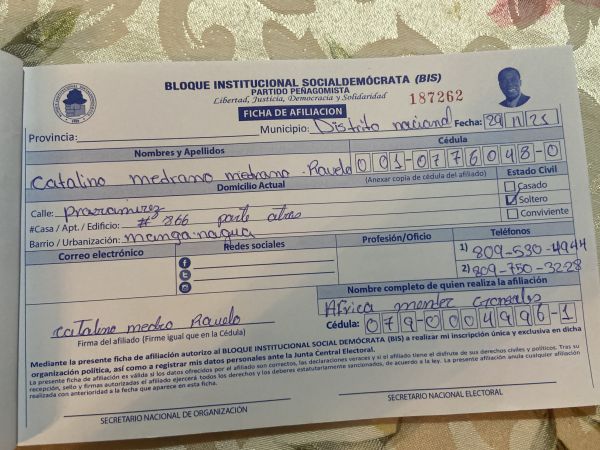 BLOQUE INSTITUCIONAL SOCIALDEMÓCRATA (BIS)
PARTIDO PEÑAGOMISTA
Libertad, Justicia, Democracia y Solidaridad
187262
FICHA DE AFILIACION
Provincia: Municipio: Distrito nacional Fecha: 29 11 25
Nombres y Apellidos Cédula
Catalino medrano medrano Ravelo 001-0776048-0
Domicilio Actual (Anexar copia de cédula del afiliado) Estado Civil
Calle: Praramirez Casado
#Casa / Apt. / Edificio: # 366 parte atras Soltero
Barrio / Urbanización: manganagua Conviviente
Correo electrónico Redes sociales Profesión/Oficio Teléfonos
1) 809-530-4944
2) 809-750-3228
Nombre completo de quien realiza la afiliación
Africa montez Gonsales
catalino medro Ravelo
Cédula: 079-0004996-1
Firma del afiliado (Firme igual que en la Cédula)
Mediante la presente ficha de afiliación autorizo al BLOQUE INSTITUCIONAL SOCIAL DEMÓCRATA (BIS) a realizar mi inscripción única y exclusiva en dicha
organización política, así como a registrar mis datos personales ante la Junta Central Electoral.
La presente ficha de afiliación es válida si los datos ofrecidos por el afiliado son correctos, las declaraciones veraces y si el afiliado tiene el disfrute de sus derechos civiles y políticos. Tras su
recepción, sello y firmas autorizadas el afiliado ejercerá todos los derechos y los deberes estatutariamente sancionados, de acuerdo a la ley. La presente afiliación anula cualquier afiliación
realizada con anterioridad a la fecha que aparece en esta ficha.
SECRETARIO NACIONAL DE ORGANIZACIÓN SECRETARIO NACIONAL ELECTORAL